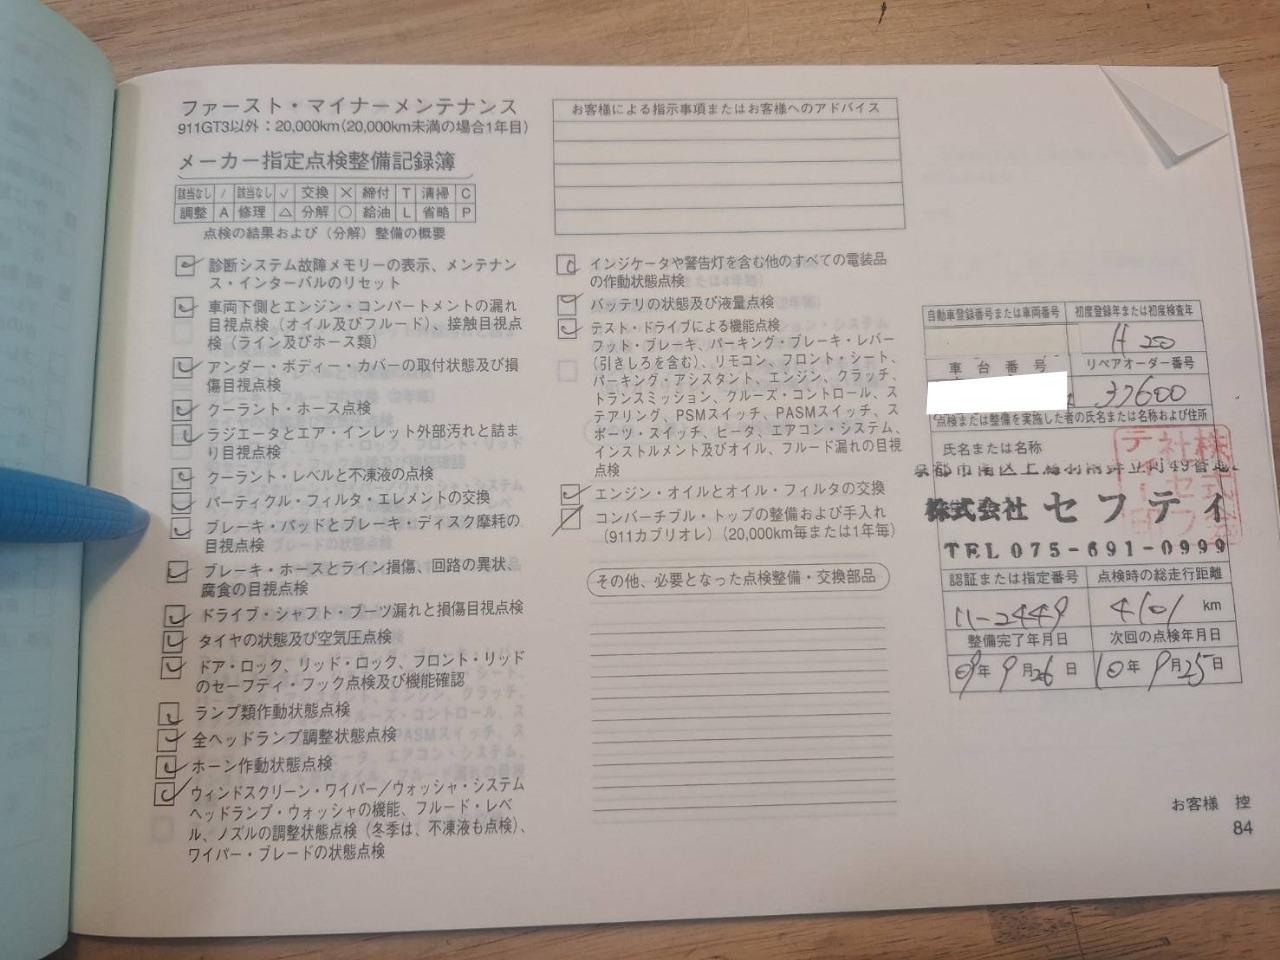 ファースト・マイナーメンテナンス
911GT3以外：20,000km(20,000km未満の場合1年目)
メーカー指定点検整備記録簿
該当なし / 該当なし ✓ 交換 × 締付 T 清掃 C
調整 A 修理 △ 分解 ○ 給油 L 省略 P
点検の結果および（分解）整備の概要
診断システム故障メモリーの表示、メンテナン
ス・インターバルのリセット
車両下側とエンジン・コンパートメントの漏れ
目視点検（オイル及びフルード）、接触目視点
検（ライン及びホース類）
アンダー・ボディー・カバーの取付状態及び損
傷目視点検
クーラント・ホース点検
ラジエータとエア・インレット外部汚れと詰ま
り目視点検
クーラント・レベルと不凍液の点検
パーティクル・フィルタ・エレメントの交換
ブレーキ・パッドとブレーキ・ディスク摩耗の
目視点検
ブレーキ・ホースとライン損傷、回路の異状、
腐食の目視点検
ドライブ・シャフト・ブーツ漏れと損傷目視点検
タイヤの状態及び空気圧点検
ドア・ロック、リッド・ロック、フロント・リッド
のセーフティ・フック点検及び機能確認
ランプ類作動状態点検
全ヘッドランプ調整状態点検
ホーン作動状態点検
ウィンドスクリーン・ワイパー／ウォッシャ・システム
ヘッドランプ・ウォッシャの機能、フルード・レベ
ル、ノズルの調整状態点検（冬季は、不凍液も点検）、
ワイパー・ブレードの状態点検
お客様による指示事項またはお客様へのアドバイス
インジケータや警告灯を含む他のすべての電装品
の作動状態点検
バッテリの状態及び液量点検
テスト・ドライブによる機能点検
フット・ブレーキ、パーキング・ブレーキ・レバー
（引きしろを含む）、リモコン、フロント・シート、
パーキング・アシスタント、エンジン、クラッチ、
トランスミッション、クルーズ・コントロール、ス
テアリング、PSMスイッチ、PASMスイッチ、ス
ポーツ・スイッチ、ヒータ、エアコン・システム、
インストルメント及びオイル、フルード漏れの目視
点検
エンジン・オイルとオイル・フィルタの交換
コンバーチブル・トップの整備および手入れ
（911カブリオレ）（20,000km毎または1年毎）
その他、必要となった点検整備・交換部品
自動車登録番号または車両番号 初度登録年または初度検査年
H20
車台番号 リペアオーダー番号
37600
点検または整備を実施した者の氏名または名称および住所
氏名または名称
株式会社 セフティ
TEL 075-691-0999
認証または指定番号 点検時の総走行距離
11-2449 4101 km
整備完了年月日 次回の点検年月日
09年9月26日 10年9月25日
お客様 控
84